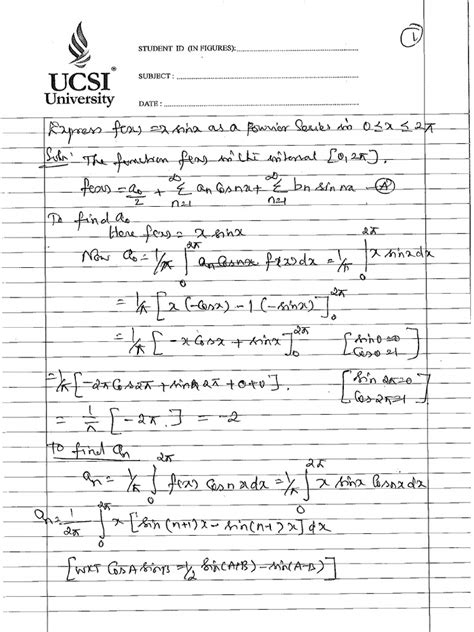 ①
STUDENT ID (IN FIGURES):
UCSI
University
SUBJECT :
DATE :
Express f(x) = x sinx as a Fourier Series in 0 ≤ x ≤ 2π
Soln: The function f(x) in the interval [0, 2π].
f(x) = a₀/2 + Σ_{n=1}^{∞} an Cosnx + Σ_{n=1}^{∞} bn sin nx. Ⓐ
To find a₀
Here f(x) = x sinx
Now a₀ = 1/π ∫_0^{2π} f(x) dx = 1/π ∫_0^{2π} x sinx dx
= 1/π [x(-Cosx) - 1(-sinx)]_0^{2π}
= 1/π [-x Cosx + sinx]_0^{2π} [sin0=0 Cos0=1]
= 1/π [-2π Cos2π + sin 2π + 0+0]. [sin 2π=0 Cos 2π=1]
= 1/π [-2π.] = -2
To find an
an = 1/π ∫_0^{2π} f(x) Cosnx dx = 1/π ∫_0^{2π} x sinx Cosnx dx
an = 1/2π ∫_0^{2π} x [sin(n+1)x - sin(n-1)x] dx
[WKT CosA sinB = 1/2 sin(A+B) - sin(A-B)]